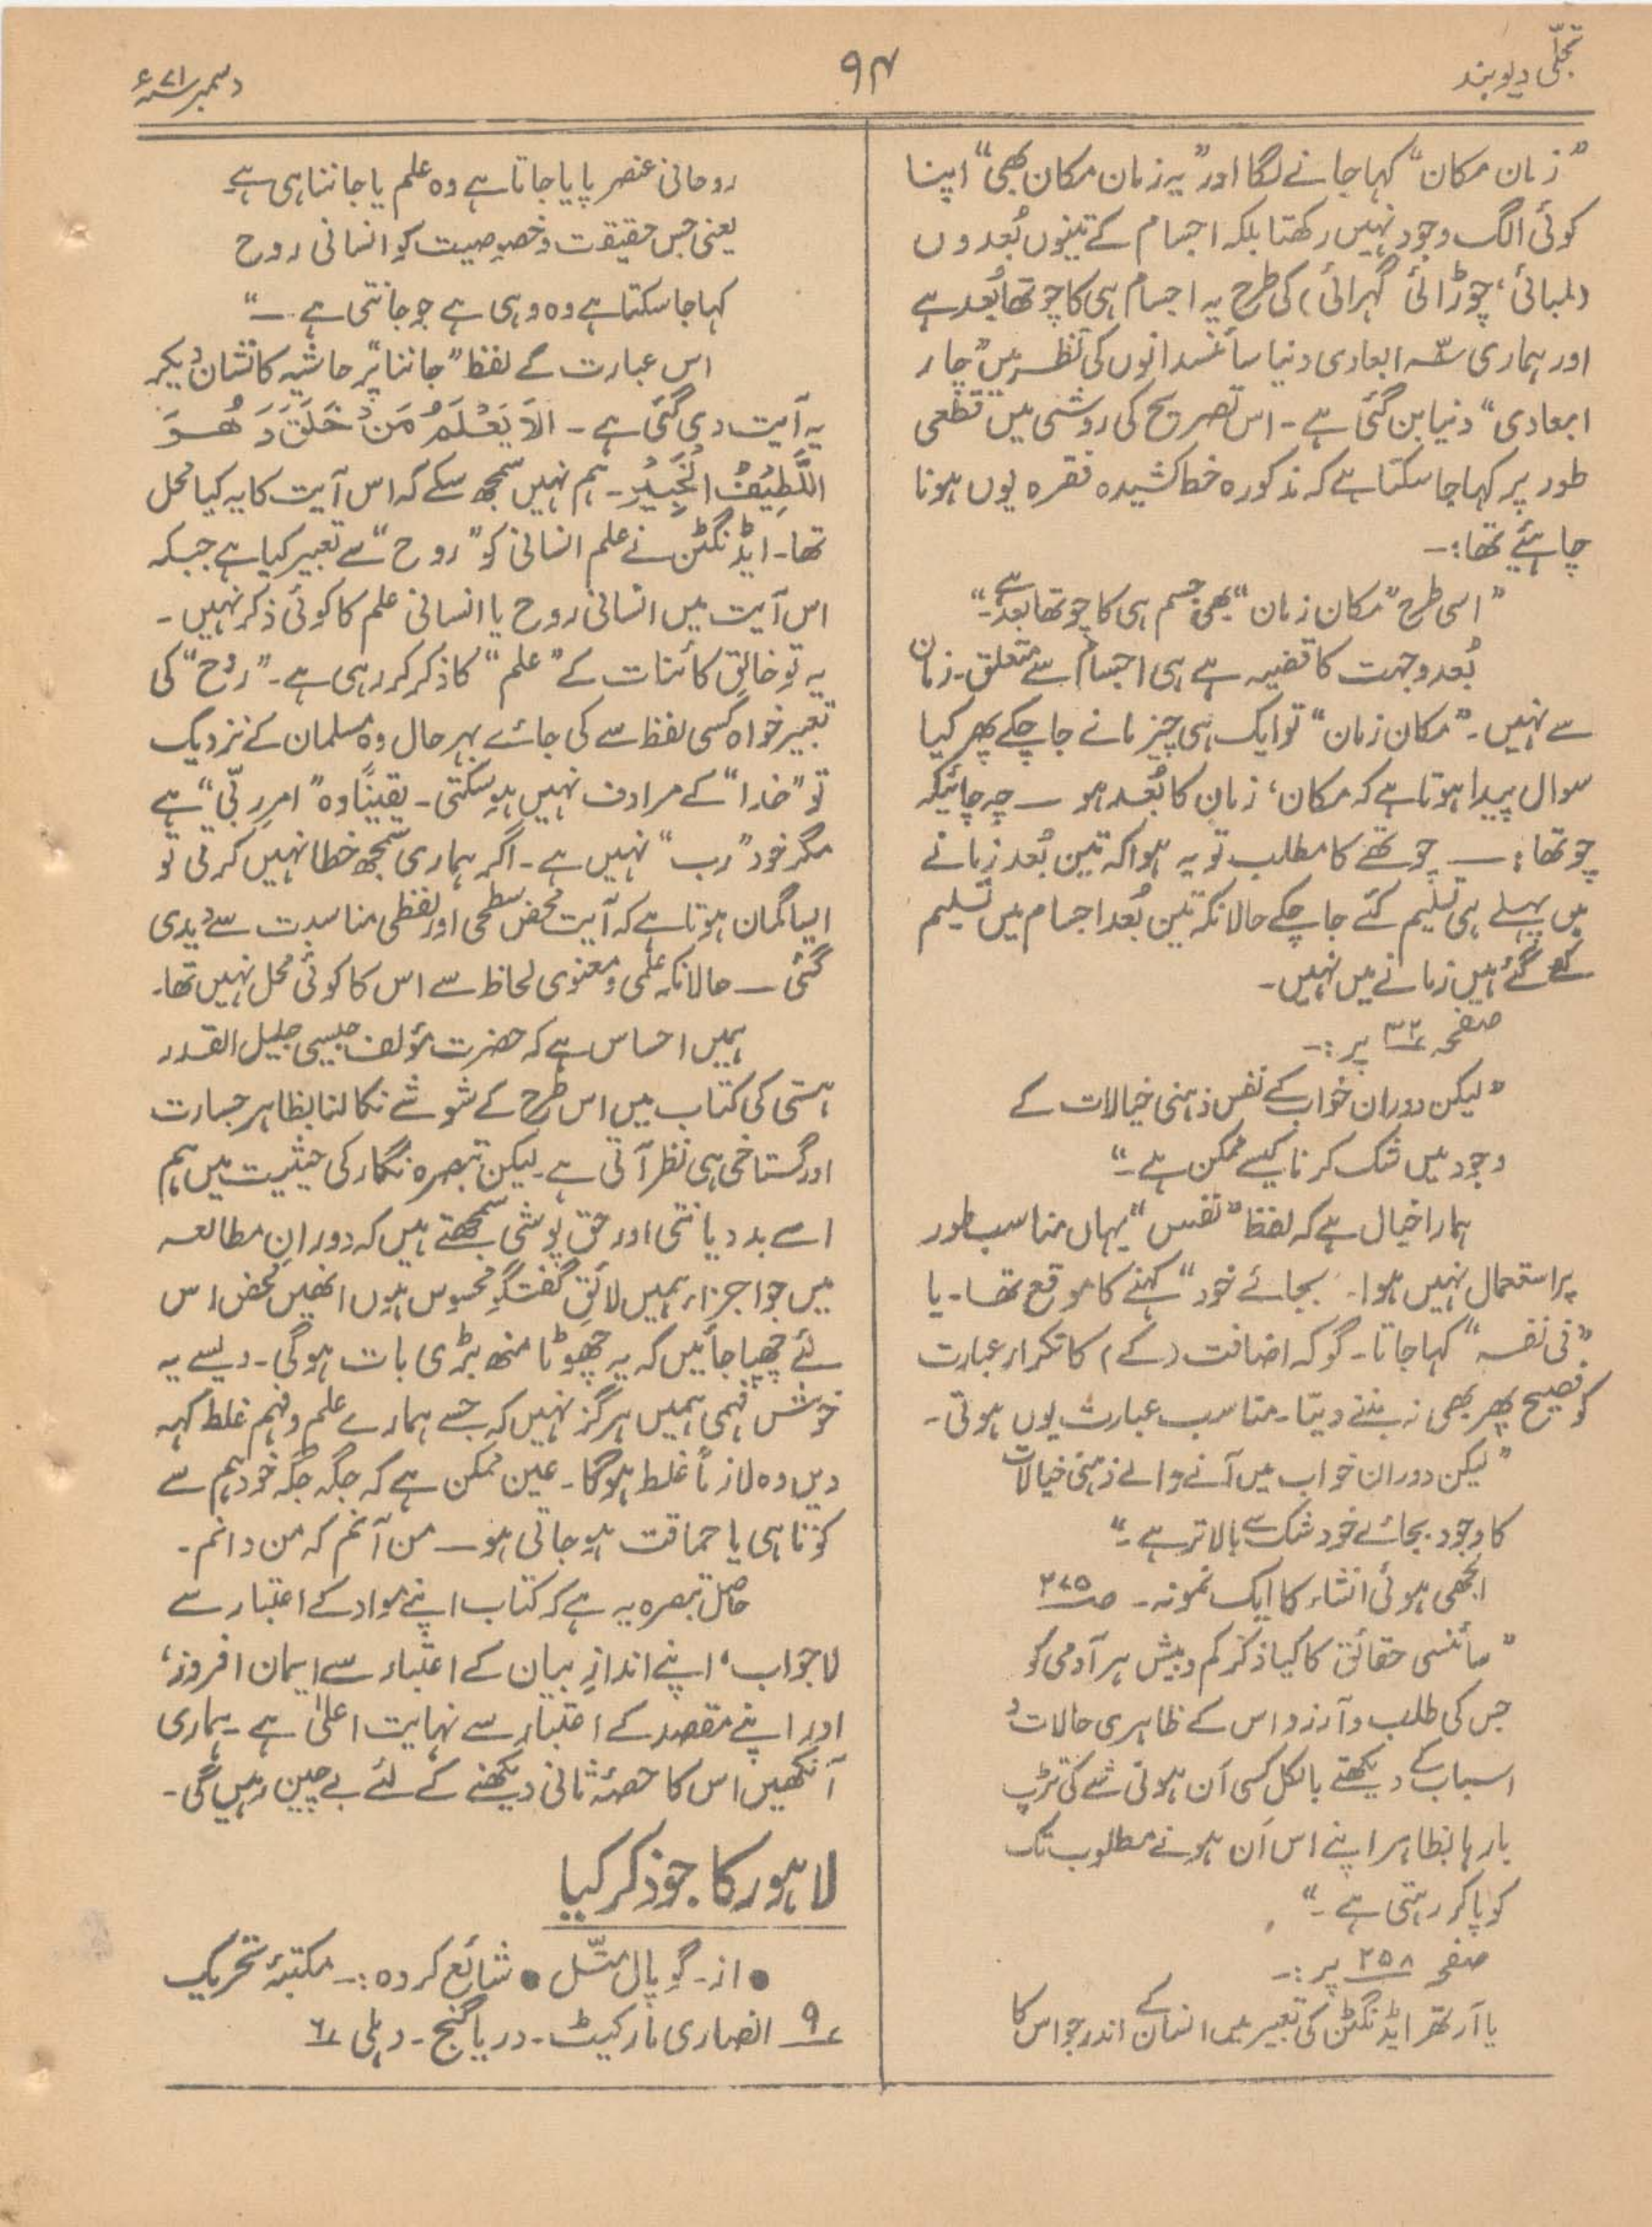 تجلّی دیوبند
۹۴
دسمبر ۷۱ء
”زمان مکان“ کہا جانے لگا اور ”یہ زمان مکان بھی“ اپنا
کوئی الگ وجود نہیں رکھتا بلکہ اجسام کے تینوں بُعدوں
(لمبائی، چوڑائی گہرائی) کی طرح یہ اجسام ہی کا چوتھا بُعد ہے
اور ہماری سہ ابعادی دنیا سائنسدانوں کی نظر میں ”چار
ابعادی“ دنیا بن گئی ہے۔ اس تصریح کی روشنی میں قطعی
طور پر کہا جا سکتا ہے کہ مذکورہ خط کشیدہ فقرہ یوں ہونا
چاہیئے تھا:۔
”اسی طرح ”مکان زمان“ بھی جسم ہی کا چوتھا بعد ہے۔“
بُعد و جہت کا قضیہ ہے ہی اجسام سے متعلق۔ زمان
سے نہیں۔ ”مکان زمان“ تو ایک ہی چیز مانے جا چکے پھر کیا
سوال پیدا ہوتا ہے کہ مکان، زمان کا بُعد ہو — چہ جائیکہ
چوتھا؛ — چوتھے کا مطلب تو یہ ہوا کہ تین بُعد زمانے
میں پہلے ہی تسلیم کئے جا چکے حالانکہ تین بُعد اجسام میں تسلیم
کئے گئے ہیں زمانے میں نہیں۔
صفحہ ۳۲ پر:۔
”لیکن دوران خواب کے نفس ذہنی خیالات کے
وجود میں شک کرنا کیسے ممکن ہے۔“
ہمارا خیال ہے کہ لفظ ”نفس“ یہاں مناسب طور
پر استعمال نہیں ہوا۔ بجائے خود“ کہنے کا موقع تھا۔ یا
”فی نفسہ“ کہا جاتا۔ گو کہ اضافت (کے) کا تکرار عبارت
کو فصیح پھر بھی نہ بننے دیتا۔ مناسب عبارت یوں ہوتی۔
”لیکن دوران خواب میں آنے والے ذہنی خیالات
کا وجود بجائے خود شک سے بالاتر ہے۔“
الجھی ہوئی انشاء کا ایک نمونہ۔ صـ ۲۷۵
”سائنسی حقائق کا کیا ذکر کم و بیش ہر آدمی کو
جس کی طلب و آرزو اس کے ظاہری حالات و
اسباب کے دیکھتے بالکل کسی اَن ہونی شے کی تڑپ
بارہا بظاہر اپنے اس اَن ہونے مطلوب تک
کو پا کر رہتی ہے۔“
صفحہ ۲۵۸ پر:۔
یا آرتھر ایڈنگٹن کی تعبیر میں انسان کے اندر جو اس کا
روحانی عنصر پایا جاتا ہے وہ علم یا جاننا ہی ہے
یعنی جس حقیقت و خصوصیت کو انسانی روح
کہا جا سکتا ہے وہ وہی ہے جو جانتی ہے۔“
اس عبارت کے لفظ ”جاننا“ پر حاشیہ کا نشان دیکر
یہ آیت دی گئی ہے۔ اَلَا يَعْلَمُ مَنْ خَلَقَ وَ هُوَ
اللَّطِيْفُ الْخَبِيْرُ۔ ہم نہیں سمجھ سکے کہ اس آیت کا یہ کیا محل
تھا۔ ایڈنگٹن نے علم انسانی کو ”روح“ سے تعبیر کیا ہے جبکہ
اس آیت میں انسانی روح یا انسانی علم کا کوئی ذکر نہیں۔
یہ تو خالقِ کائنات کے ”علم“ کا ذکر کر رہی ہے۔ ”رُوح“ کی
تعبیر خواہ کسی لفظ سے کی جائے بہرحال وہ مسلمان کے نزدیک
تو ”خدا“ کے مرادف نہیں ہو سکتی۔ یقیناً وہ ”امرِ ربّی“ ہے
مگر خود ”رب“ نہیں ہے۔ اگر ہماری سمجھ خطا نہیں کرتی تو
ایسا گمان ہوتا ہے کہ آیت محض سطحی اور لفظی مناسبت سے دیدی
گئی — حالانکہ علمی و معنوی لحاظ سے اس کا کوئی محل نہیں تھا۔
ہمیں احساس ہے کہ حضرت مؤلف جیسی جلیل القدر
ہستی کی کتاب میں اس طرح کے شوشے نکالنا بظاہر جسارت
اور گستاخی ہی نظر آتی ہے۔ لیکن تبصرہ نگار کی حیثیت میں ہم
اسے بددیانتی اور حق پوشی سمجھتے ہیں کہ دورانِ مطالعہ
میں جو اجزاء ہمیں لائقِ گفتگو محسوس ہوں انھیں محض اس
لئے چھپا جائیں کہ یہ چھوٹا منھ بڑی بات ہوگی۔ ویسے یہ
خوش فہمی ہمیں ہرگز نہیں کہ جسے ہمارے علم و فہم غلط کہہ
دیں وہ لازماً غلط ہوگا۔ عین ممکن ہے کہ جگہ جگہ خود ہم سے
کوتاہی یا حماقت ہو جاتی ہو — من آنم کہ من دانم۔
حاصلِ تبصرہ یہ ہے کہ کتاب اپنے مواد کے اعتبار سے
لاجواب، اپنے اندازِ بیان کے اعتبار سے ایمان افروز،
اور اپنے مقصد کے اعتبار سے نہایت اعلیٰ ہے۔ ہماری
آنکھیں اس کا حصۂ ثانی دیکھنے کے لئے بے چین رہیں گی۔
لاہور کا جو ذکر کیا
● از۔ گوپال متّل ● شائع کردہ:۔ مکتبۂ تحریک
۹ انصاری مارکیٹ۔ دریا گنج۔ دہلی ۶